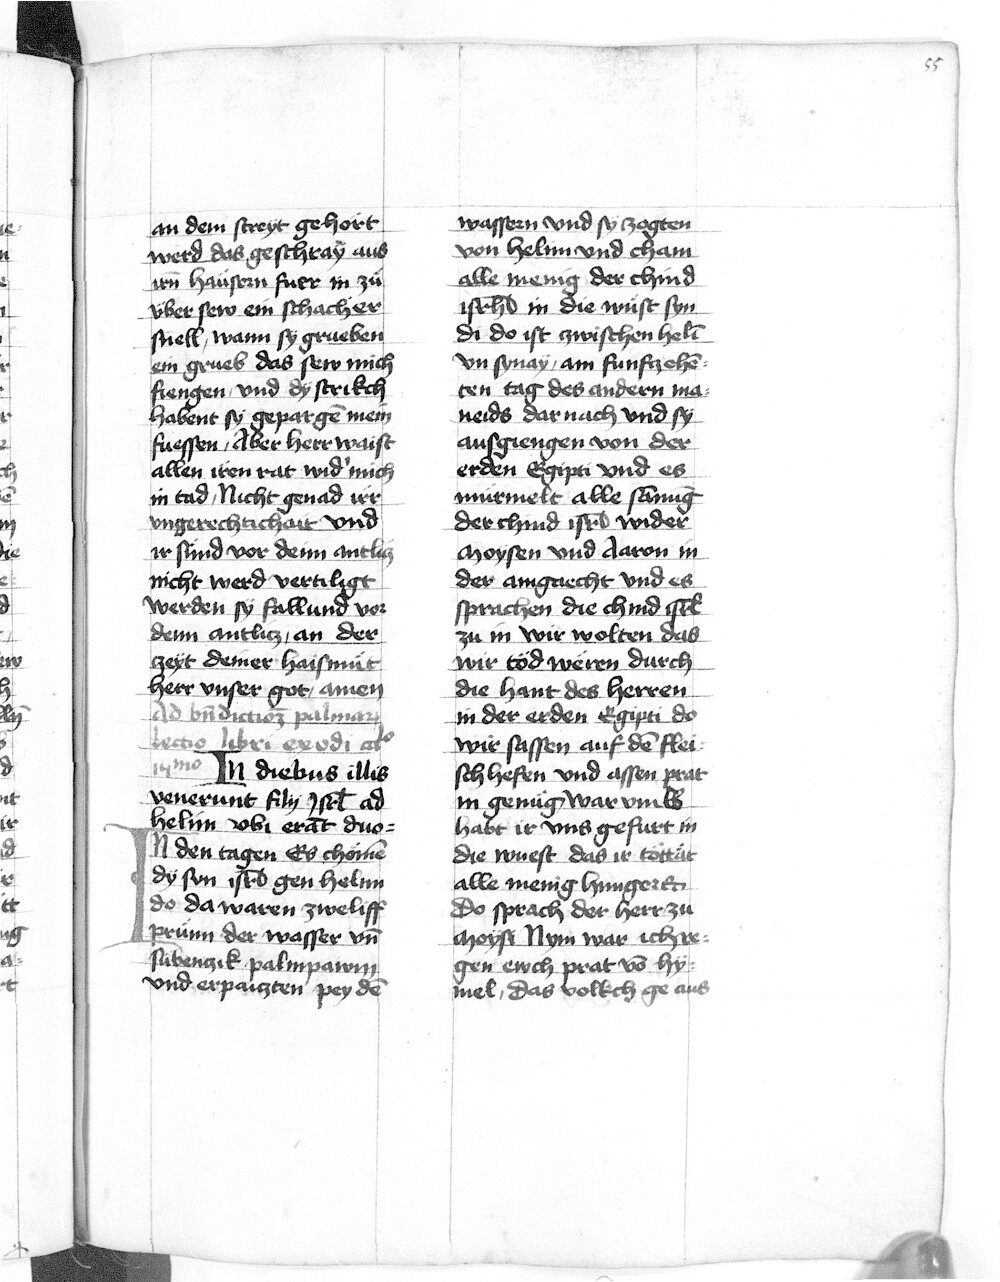 55
an dem streyt gehort
werd das geschray aus
irn hausern fuer in zu
uber sew ein schacher
snell, wann sy grueben
ein grueb das sew mich
fiengen, und dy strikch
habent sy gepargē mein
fuessen, Aber herr waist
allen iren rat wid' mich
in tad, Nicht genad irr
vngerechtichait vnd
ir sünd vor deim antlicz
nicht werd vertiligt
werden sy fallund vor
deim antlicz, an der
zeyt deiner haismüt
herr vnser got, amen
Ad bn̄dictioē palmarū
lectio libri exodi
In diebus illis
venerunt filij Isrl̄ ad
helim vbi erāt duo=
IN den tagen Es chomē
dy sun isrl̄ gen helim
do da waren zweliff
prünn der wasser vn̄
sibenczik palmpawm
vnd erpaiczten pey dē
wassern vnd sy zogten
von helim vnd cham
alle menig der chind
isrl̄ in die wüst syn
di do ist zwischen heli
vn synay, am funfczehē=
ten tag des andern ma=
neids darnach vnd sy
ausgiengen von der
erden Egipti vnd es
murmelt alle samūg
der chind isrl̄ wider
Moysen vnd Aaron in
der ainguecht vnd es
sprachen die chind isrl̄
zu in wir wolten das
wir töd weren durch
die hant des herren
in der erden Egipti do
wir sassen auf dē flei=
schhefen vnd assen prat
in genüg warvmb
habt ir vns gefurt in
die wuest das ir tottät
alle menig hungers
Do sprach der herr zu
Moysi Nym war ich re=
gen ewch prat vō hy=
mel, Das volkch ge aus